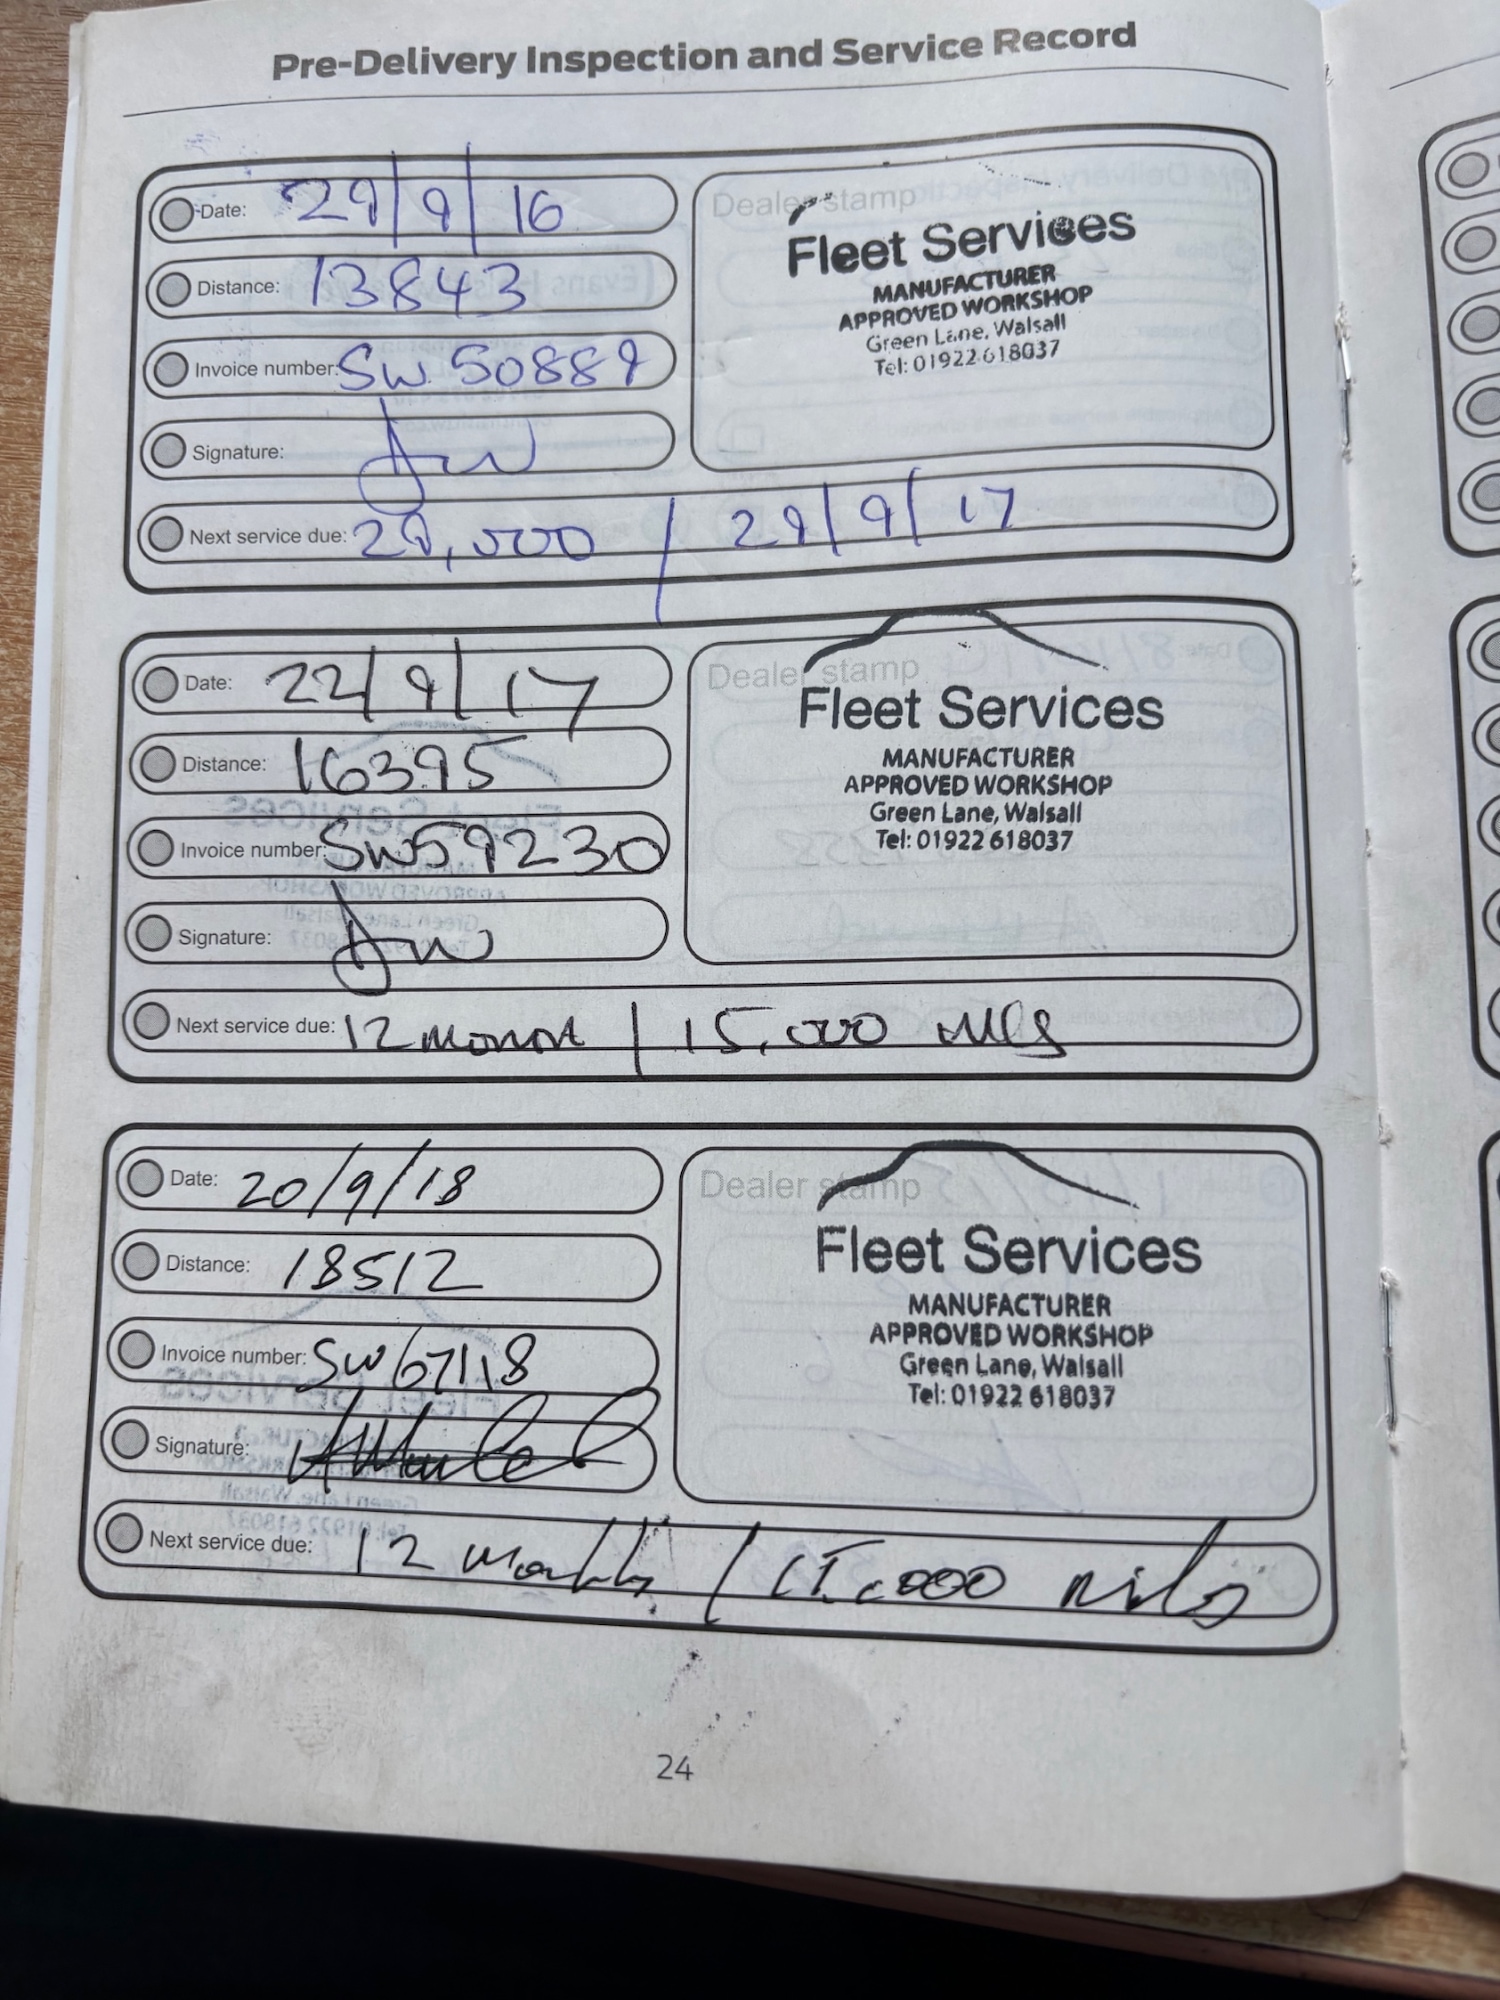 Pre-Delivery Inspection and Service Record
Date: 29/9/16
Distance: 13843
Invoice number: SW 50889
Signature:
Next service due: 29,000 / 29/9/17
Dealer stamp
Fleet Services
MANUFACTURER
APPROVED WORKSHOP
Green Lane, Walsall
Tel: 01922 618037
Date: 22/9/17
Distance: 16395
Invoice number: SW59230
Signature:
Next service due: 12 month / 15,000 miles
Dealer stamp
Fleet Services
MANUFACTURER
APPROVED WORKSHOP
Green Lane, Walsall
Tel: 01922 618037
Date: 20/9/18
Distance: 18512
Invoice number: SW67118
Signature:
Next service due: 12 months / 15,000 miles
Dealer stamp
Fleet Services
MANUFACTURER
APPROVED WORKSHOP
Green Lane, Walsall
Tel: 01922 618037
24